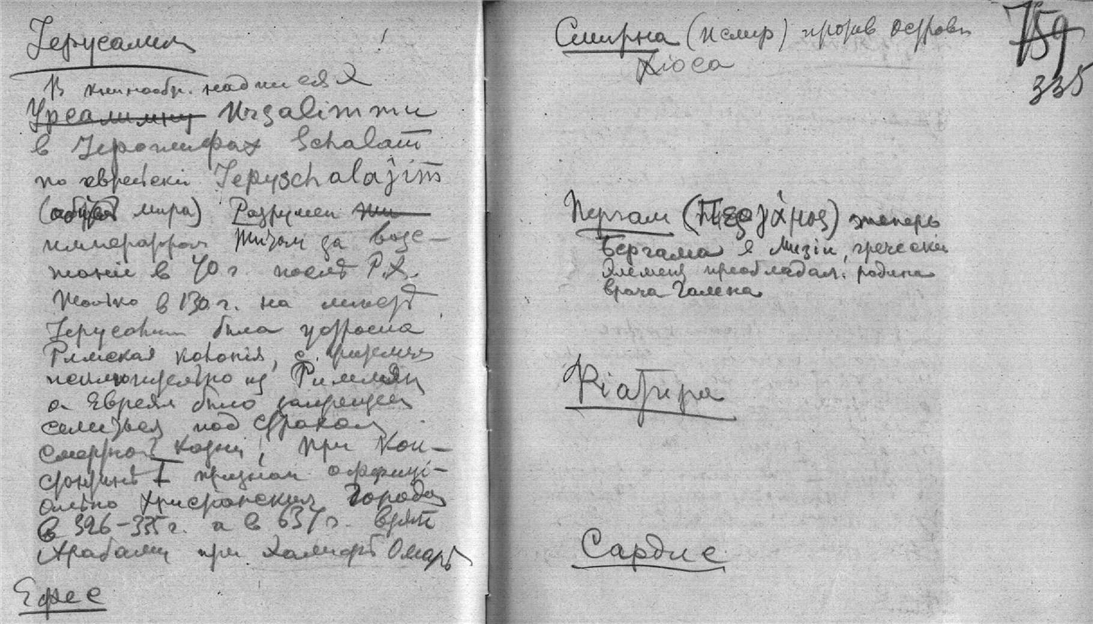 Іерусалим
В клинообр. надписях
Уреалимму Ursalimmu
в Іероглифах Schalam
по еврейски Іеруschalajim
(мира) Разрушен
императором Титом за возс-
таніе в 70 г. послѣ Р.Х.
Только в 130 г. на мѣстѣ
Іерусалим была
Римская колонія, с
исключительно из Римлян
а Евреям было запрещен
селиться под страхом
смертной казни, При Кон-
стантинѣ I признан оффиці-
ально христіанским городом
в 326-335 г. а в 637 г. взят
Арабами при Халифѣ Омарѣ
Ефес
Смирна (Исмир) против острова
Хіоса
759
335
Пергам (Περγάμος) теперь
Бергама в Мизіи, греческій
элемент преобладал. родина
врача Галена
Ѳіатира
Сардис